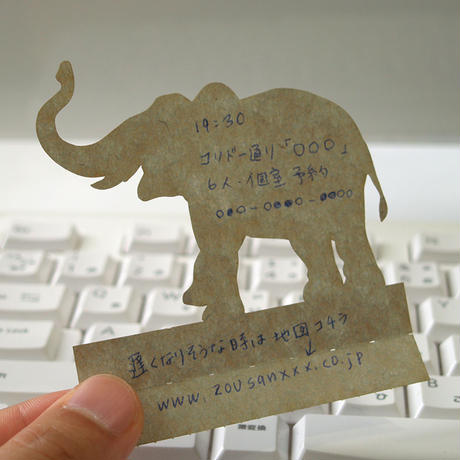 19:30
コリドー通り「○○○」
6人・個室予約
○○○-○○○○-○○○○
遅くなりそうな時は 地図コチラ
↓
www.zousanxxx.co.jp
無変換